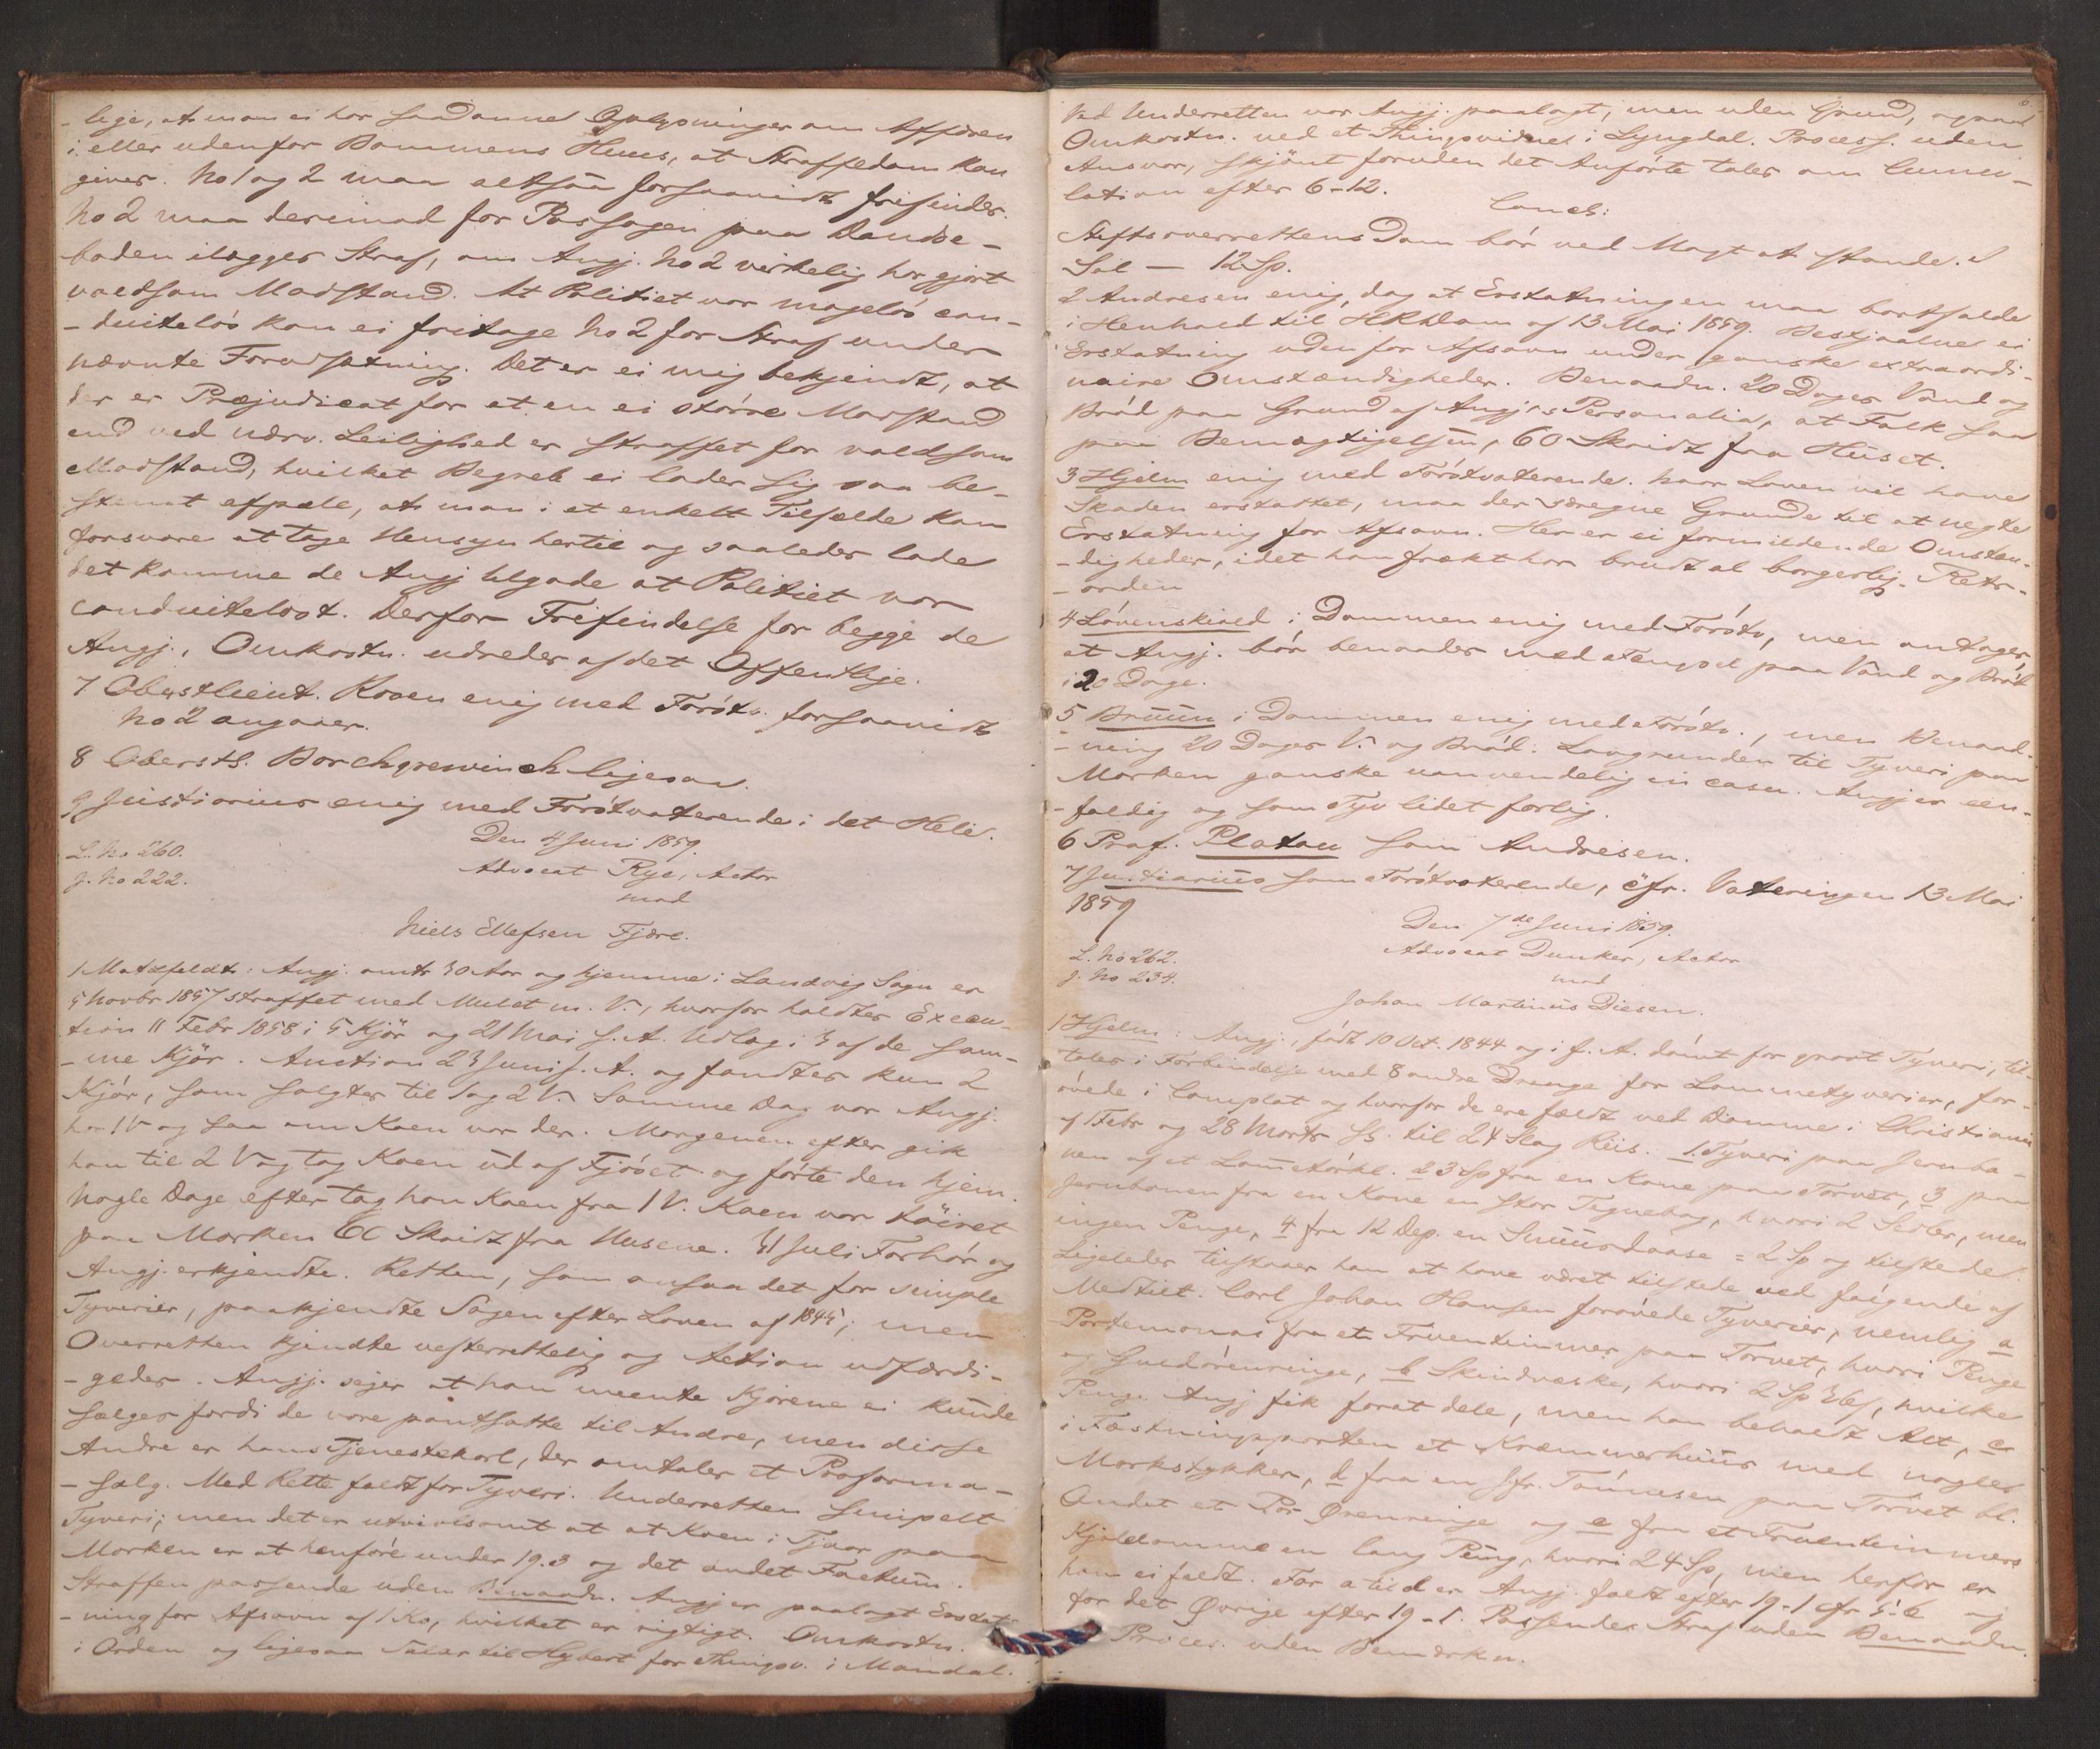 - lige, at man ei har saadanne Oplysninger om Affæren
i eller udenfor Bommens Huus, at Straffedom kan
gives. No 1 og 2 maa altsaa forsaavidt frifindes.
No 2 maa derimod for Passagen paa Dandse-
boden ilægges Straf, om Angj. No 2 virkelig har gjort
voldsom Modstand. At Politiet var mageløs con-
- duiteløs kan ei fritage No 2 for Straf under
nævnte Forudsætning. Det er ei mig bekjendt, at
der er Præjudicat for at en ei større Modstand
end ved nærv. Leilighed er straffet for voldsom
Modstand, hvilket Begreb ei lader sig saa be-
stemt afpæle, at man i et enkelt Tilfælde kan
forsvare at tage Hensyn hertil og saaledes lade
det komme de Angj. tilgode at Politiet var
conduiteløst. Derfor Frifindelse for begge de
Angj., Omkostn. udredes af det Offentlige.
7 Oberstlieut. Roven enig med Førstv. forsaavidt
No 2 angaaer.
8 Oberstl. Borchgrewinch ligesaa.
9 Justitiarius enig med Førstvoterende i det Hele.
Den 4 Juni 1859.
L. No 260.
J. No 222.
Advocat Rye, Actor
mod
Niels Ellefsen Fjære.
1 Motzfeldt: Angj. omtr 30 Aar og hjemme i Landvig Sogn er
5 Novbr 1857 straffet med Mulct m. V., hvorfor holdtes Execu-
tion 11 Febr 1858 i 5 Kjør og 21 Mai s. A. Udlæg i 3 af de sam-
- me Kjør. Auction 23 Juni s. A. og fandtes kun 2
Kjør, som solgtes til 1 og 2 V. Samme Dag var Angj.
hos 1 V og saa om Koen var der. Morgenen efter gik
han til 2 V og tog Koen ud af Fjøset og førte den hjem.
Nogle Dage efter tog han Koen fra 1 V. Koen var tøiret
paa Marken 60 Skridt fra Husene. 31 Juli Forhør og
Angj. erkjendte. Retten, som ansaa det for simple
Tyverier, paakjendte Sagen efter Loven af 1845; men
Overretten kjendte uefterrettelig og Action udfærdi-
- gedes. Angj. siger at han meente Kjørene ei kunde
sælges fordi de vare pantsatte til Andre, men disse
Andre er hans Tjenestekarl, der omtaler et Proforma-
- salg. Med Rette fældt for Tyveri. Underretten simpelt
Tyveri; men det er utvivlsomt at at Koen i Tjor paa
Marken er at henføre under 19.3 og det andet Factum.
Straffen passende uden Benaadn. Angj er paalagt Erstat-
- ning for Afsavn af 1 Ko, hvilket er rigtigt. Omkostn.
i Orden og ligesaa Salær til Hybert for Thingsv. i Mandal.
Ved Underretten var Angj. paalagt, men uden Grund, ogsaa
Omkostn. ved et Thingsvidne i Lyngdal. Process. uden
Ansvar, skjönt foruden det Anførte tales om Cumu-
lation efter 6-12.
Concl:
Stiftsoverrettens Dom bør ved Magt at stande.
Sal - 12 Sp.
2 Andresen enig, dog at Erstatningen maa bortfalde
i Henhold til HRsDom af 13 Mai 1859. Bestjaalne ei
Erstatning uden for Afsavn under ganske extraordi-
naire Omstændigheder. Benaadn. 20 Dages Vand og
Brød paa Grund af Angjs Personalia, at Folk saa
paa Bemægtigelsen, 60 Skridt fra Huset.
3 Hjelm enig med Førstvoterende. Naar Loven vil have
Skaden erstattet, maa der særegne Grunde til at negte
Erstatning for Afsavn. Her er ei formildende Omstæn-
- digheder, idet han frækt har brudt al borgerlig Rets-
- orden
4 Lövenskiold i Dommen enig med Førstv, men antager
at Angj. bør benaades med Fængsel paa Vand og Brød
i 20 Dage.
5 Bruun i Dommen enig med Førstv., men Benaad-
- ning 20 Dages V. og Brød. Lovgrunden til Tyveri paa
Marken ganske uanvendelig in casu. Angj er een-
- foldig og som Tyv lidet farlig.
6 Prof. Platou som Andresen.
7 Justitiarius som Førstvoterende, cfr. Voteringen 13 Mai
1859
Den 7de Juni 1859.
L. No 262.
J. No 234.
Advocat Dunker, Actor
mod
Johan Martinius Diesen.
1 Hjelm: Angj., født 10 Oct. 1844 og i f. A. dømt for groet Tyveri, til-
tales i Forbindelse med 8 andre Drenge for Lommetyverier, for-
øvede i Complot og hvorfor de ere fældt ved Domme i Christiania
af 1 Febr og 28 Marts ds. til 24 Slag Riis. 1. Tyveri paa Jernba-
nen af et Lommetørkl. 2 3 Sp fra en Kone paa Torvet, 3 paa
Jernbanen fra en Kone en stor Tegnebog, hvori 2 Sedler, men
ingen Penge, 4 fra 12 Dep. en Snuusdaase = 2 Sp og tilstedet.
Ligeledes tilstaaer han at have været tilstede ved følgende af
Medtilt. Carl Johan Hansen forøvede Tyverier, nemlig a
Portemonæ fra et Fruentimmer paa Torvet, hvori Penge
og Guldørenringe, b Skindvæske, hvori 2 Sp 36 s, hvilke
Peng. Angj fik forat dele, men han beholdt Alt, c
i Fæstningsporten et Kræmmerhuus med nogle
Markstykker, d fra en Jfr. Tönnesen paa Torvet bl.
Andet et Par Ørenringe og e fra et Fruentimmers
Kjolelomme en lang Pung, hvori 24 Sp, men herfor er
han ei fældt. For a til d er Angj. fældt efter 19-1 cfr 5-6 og
for det Øvrige efter 19-1. Passendes Straf uden Benaadn.
Proces. uden Bemærkn.